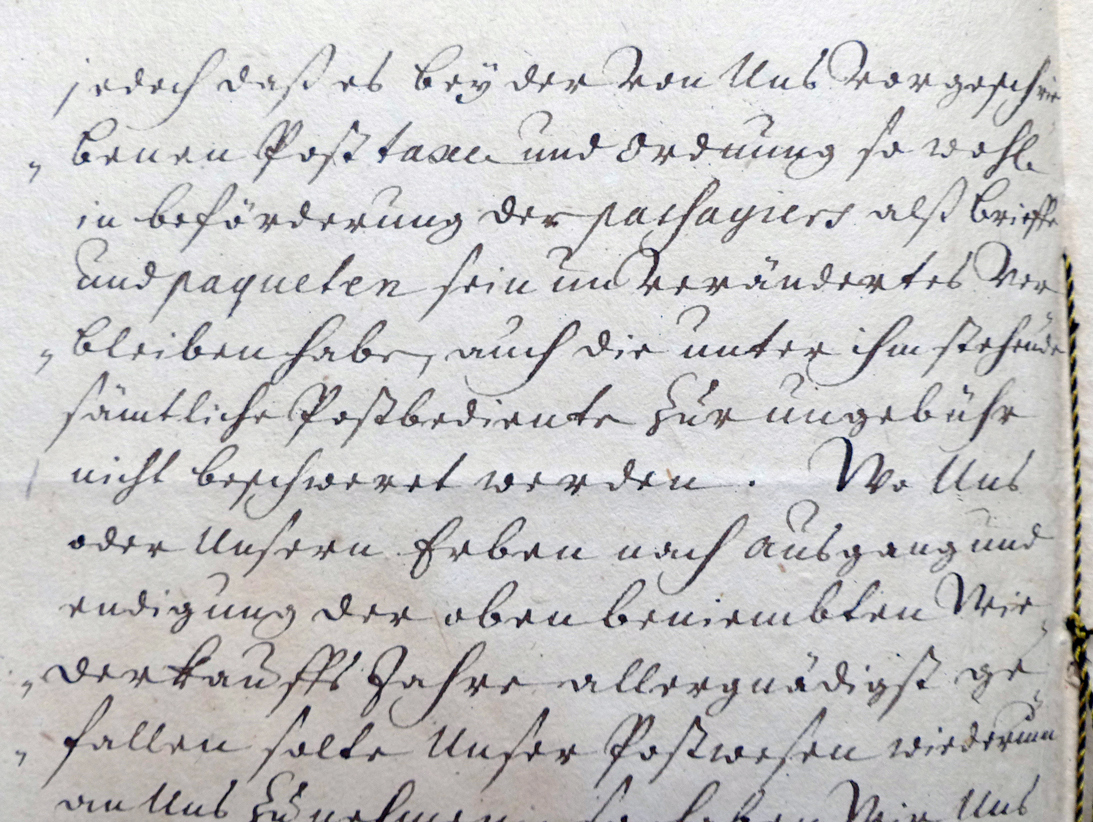 jedoch daß es bey der von Uns vorgeschrie
„ benen Post taxe und ordnung so wohl
in beförderung der passagiers alß brieffe
und paqueten sein unverändertes ver
„ bleiben habe, auch die unter ihm stehende
sämtliche Postbediente zur ungebühr
nicht beschweret werden. Wo Uns
oder Unsern Erben nach ausgang und
endigung der oben beniembten Wie„
„ derkauffs Jahre allergnädigst ge„
„ fallen solte Unser Postwesen wiederumb
an Uns zu nehmen so haben Wir Uns